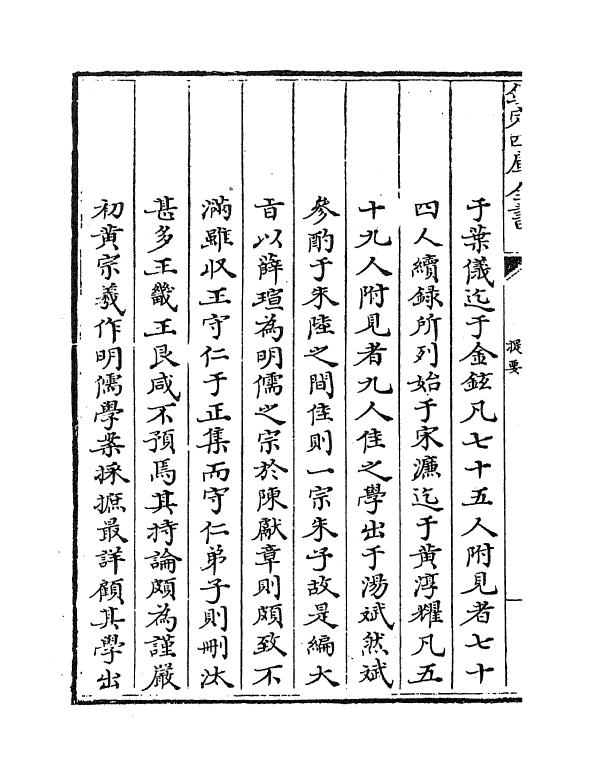 欽定四庫全書
提要
于葉儀迄于金鉉凡七十五人附見者七十
四人續録所列始于宋濂迄于黄淳耀凡五
十九人附見者九人佳之學出于湯斌然斌
參酌于朱陸之間佳則一宗朱子故是編大
㫖以薛瑄為明儒之宗於陳獻章則頗致不
滿雖収王守仁于正集而守仁弟子則刪汰
甚多王畿王艮咸不預焉其持論頗為謹嚴
初黄宗羲作明儒學案採摭最詳顧其學出